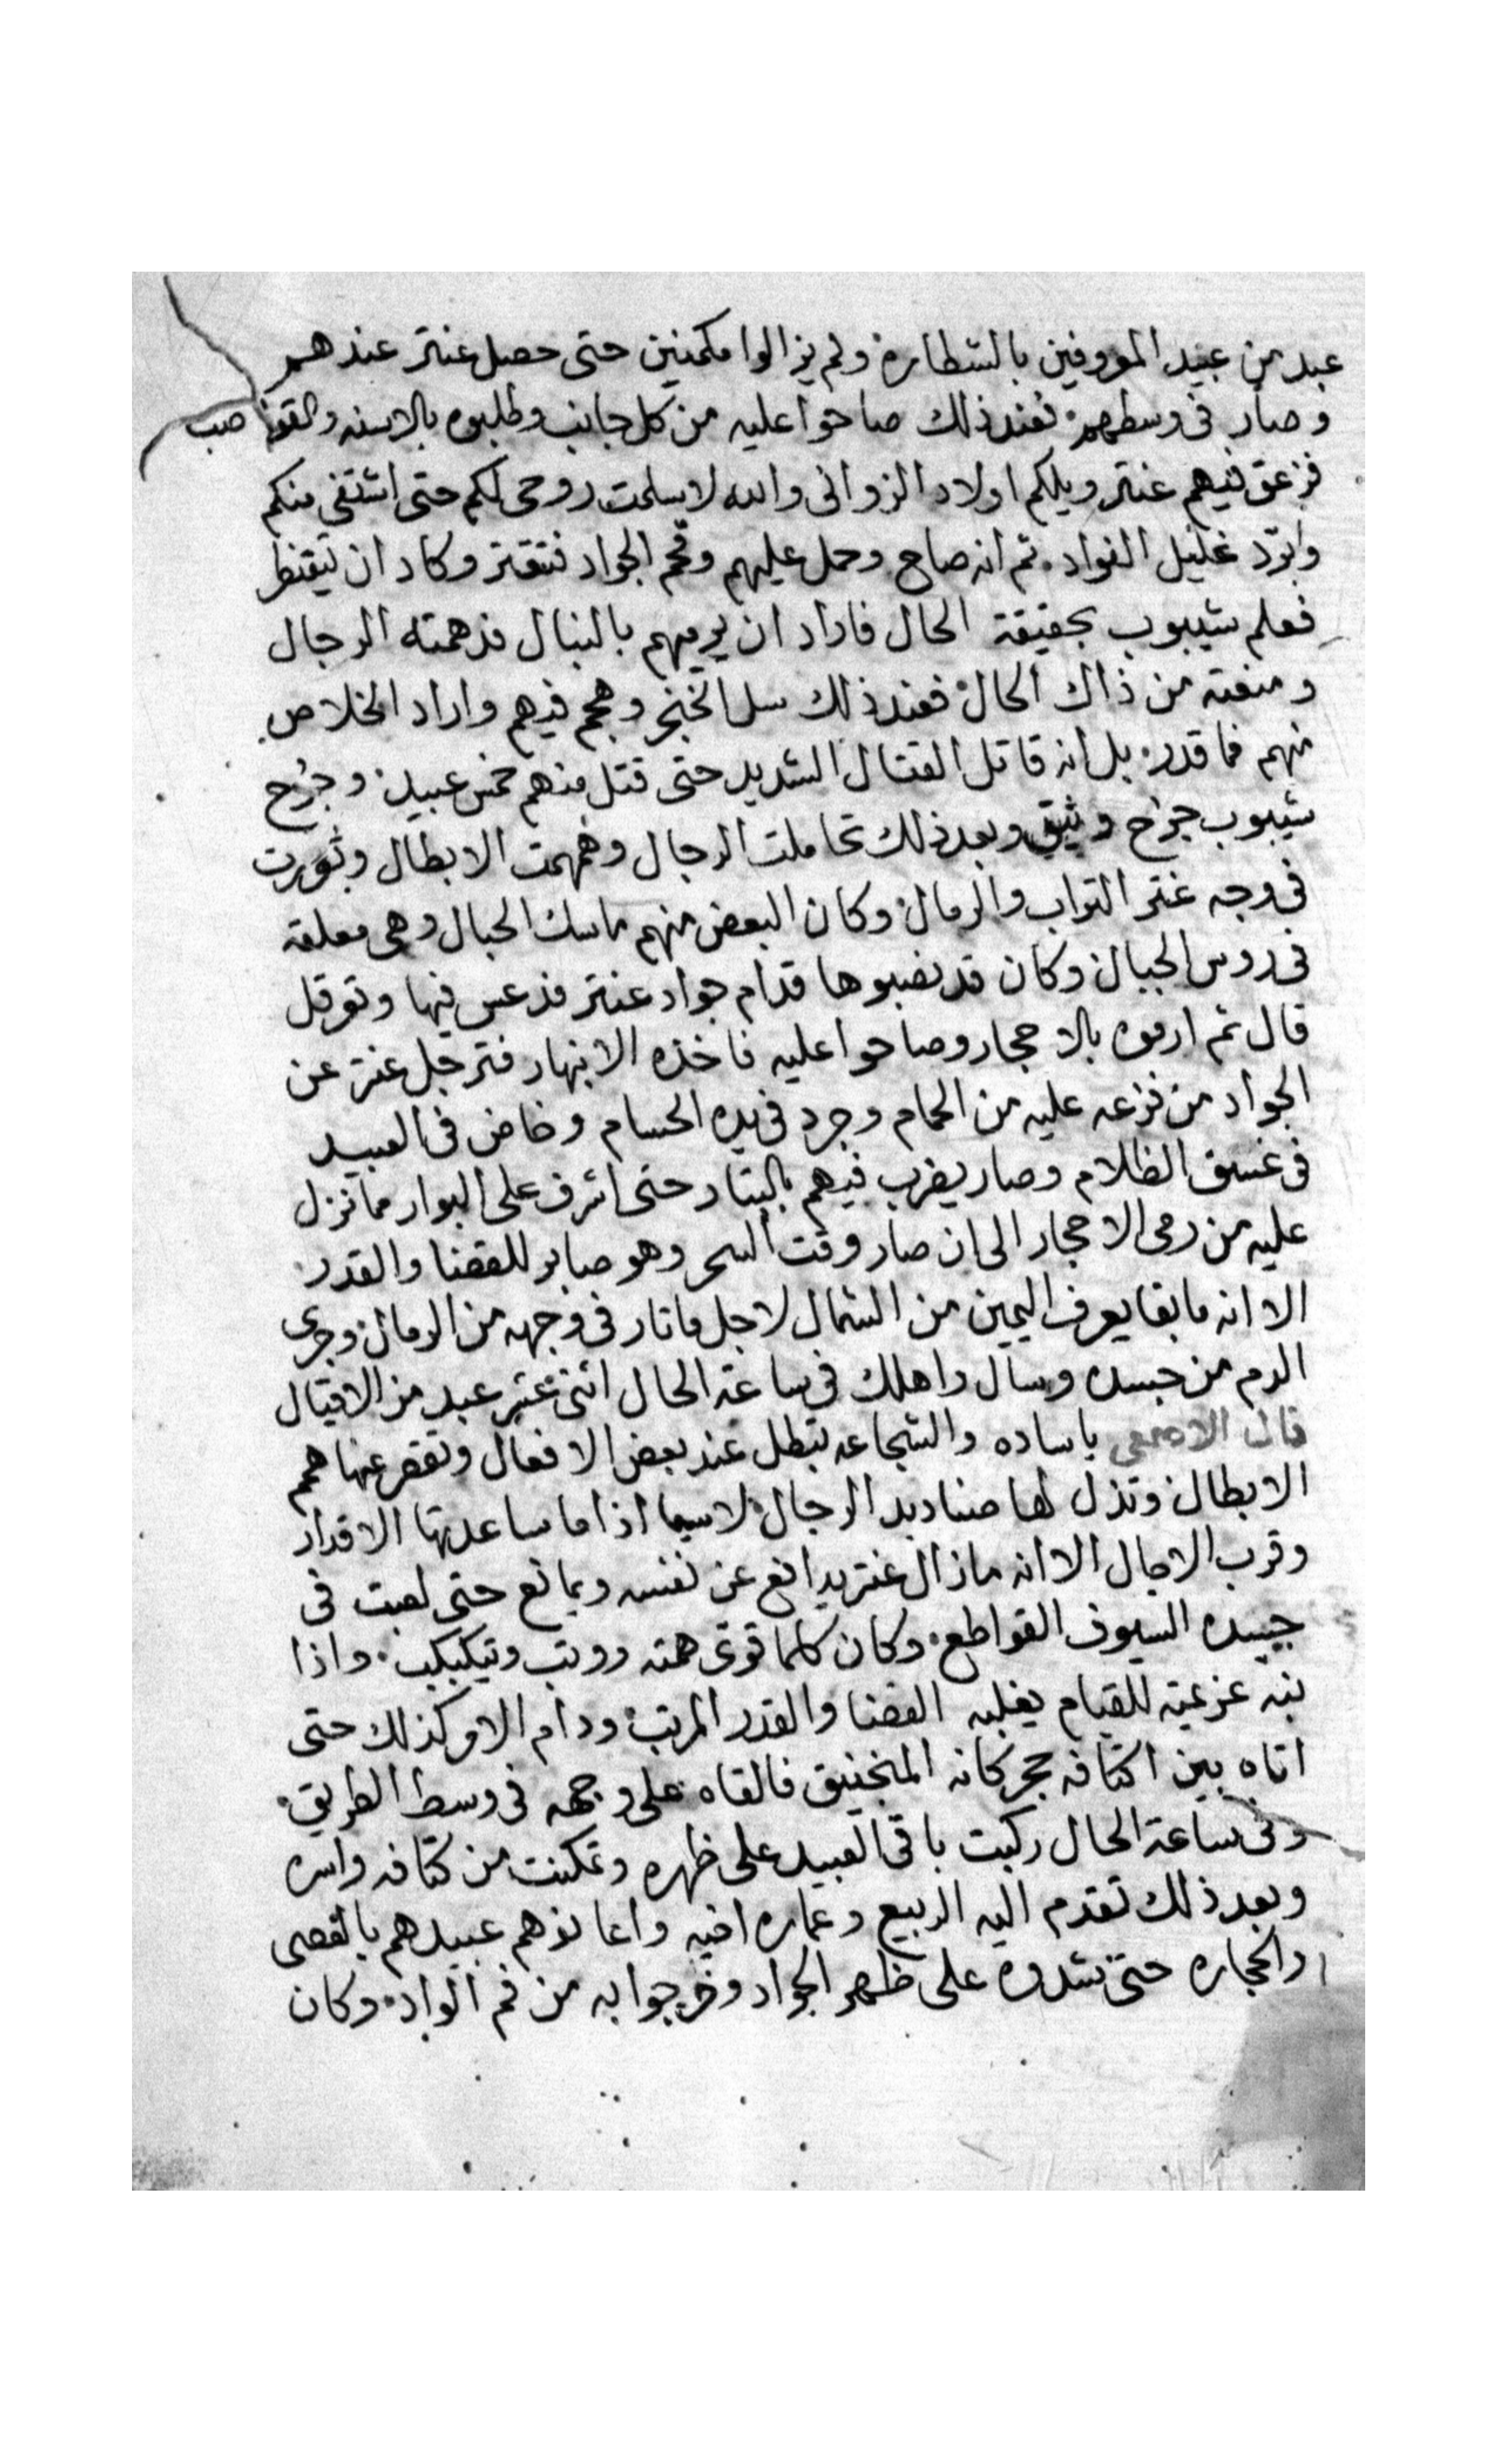 عبد من عبيد المعروفين بالشطارة ولم يزالوا مكمنين حتى حصل عنتر عندهم
وصار فى وسطهم فعند ذلك صاحوا عليه من كل جانب وطلبوه بالاسنه والقواضب
فزعق فيهم عنتر ويلكم اولاد الزوانى والله لا سلمت روحى لكم حتى اشتفى منكم
وابرّد غليل الفواد ثم انه صاح وحمل عليهم وقحم الجواد فتقنتر وكاد ان يتقنطر
فعلم شيبوب بحقيقة الحال فاراد ان يرميهم بالنبال فدهمته الرجال
ومنعته من ذاك الحال فعند ذلك سل الخنجر وهجم فيهم واراد الخلاص
منهم فما قدر بل انه قاتل القتال الشديد حتى قتل منهم خمس عبيد وجُرح
شيبوب جرْح وثيق وبعد ذلك تحاملت الرجال وهمهمت الابطال وثورت
فى وجه عنتر التراب والرمال وكان البعض منهم ماسك الحبال وهى معلقه
فى روس الجبال وكان قد نصبوها قدام جواد عنتر فدعس فيها وتوقل
قال ثم ارموه بالاحجار وصاحوا عليه فاخذه الانبهار فترجل عنتر عن
الجواد من فزعه عليه من الحمام وجرد فى يده الحسام وخاض فى العبيد
فى غسق الظلام وصار يضرب فيهم بالبتار حتى اشرف على البوار مما نزل
عليه من رمى الاحجار الى ان صار وقت السحر وهو صابر للقضا والقدر
الا انه ما بقا يعرف اليمين من الشمال لاجل ما ثار فى وجهه من الرمال وجرى
الدم من جسده وسال واهلك فى ساعة الحال اثنى عشر عبد من الاقيال
قال الاصمعى ياساده والشجاعه تبطل عند بعض الافعال وتقصر عنها همم
الابطال وتذل لها صناديد الرجال لا سيما اذا ما ساعدتها الاقدار
وقرب الاجال الا انه مازال عنتر يدافع عن نفسه ويمانع حتى لعبت فى
جسده السيوف القواطع وكان كلما قوى همته ووثب وتيكبكب واذا
نبه عزيمته للقيام يغلبه القضا والقدر المرتب ودام الامر كذلك حتى
اتاه بين اكتافه حجر كانه المنجنيق فالقاه على وجهه فى وسط الطريق
وفى ساعة الحال ركبت باقى العبيد على ظهره وتمكنت من كتافه واسره
وبعد ذلك تقدم اليه الربيع وعماره اخيه واعانوهم عبيدهم بالعصى
والحجاره حتى شدوه على ظهر الجواد وخرجوا به من فم الواد وكان